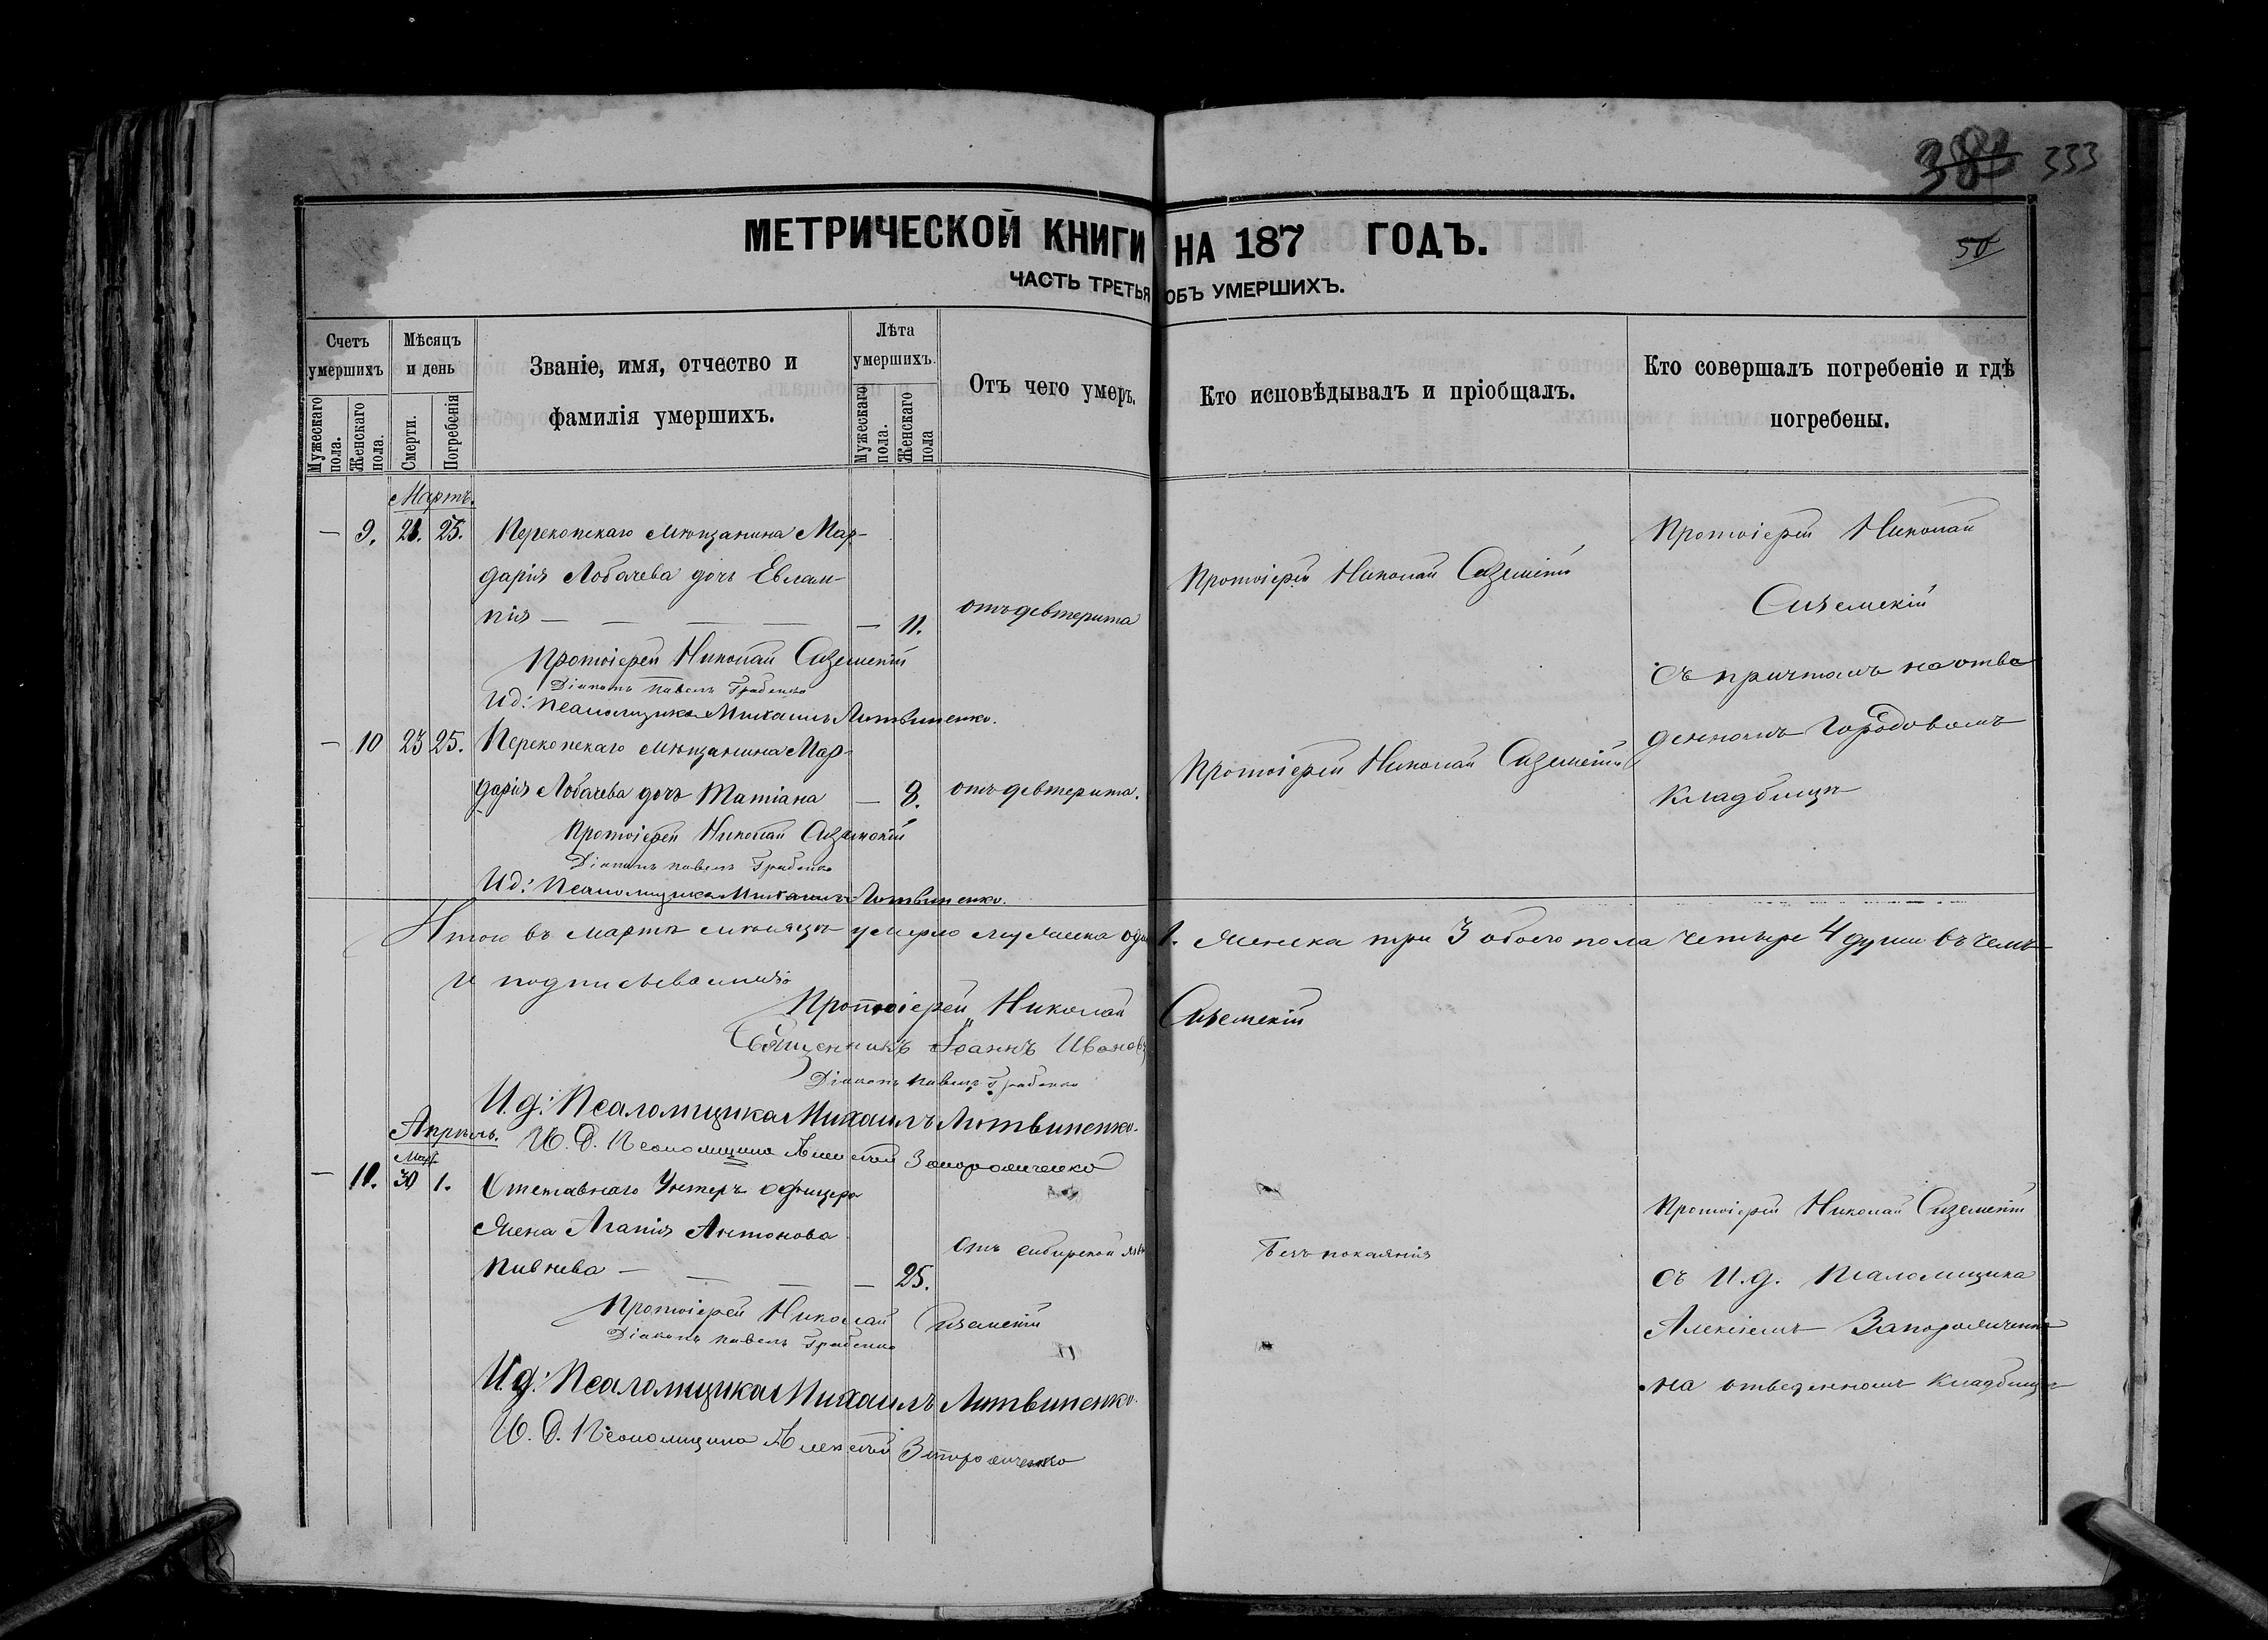 383 333
МЕТРИЧЕСКОЙ КНИГИ НА 187 ГОДЪ.
50
ЧАСТЬ ТРЕТЬЯ ОБЪ УМЕРШИХЪ.
Счетъ умершихъ
Мужескаго пола.
Женскаго пола.
Мѣсяцъ и день
Смерти.
Погребенія
Званіе, имя, отчество и
фамилія умершихъ.
Лѣта умершихъ.
Мужескаго пола.
Женскаго пола
Отъ чего умеръ.
Кто исповѣдывалъ и пріобщалъ.
Кто совершалъ погребеніе и гдѣ
погребены.
Мартъ.
— 9. 21. 25. Перекопскаго мѣщанина Мар-
дарія Лобачева дочь Евлам-
пія — — — — — 11. отъ девтерита
Протоіерей Николай Сиземскій
Протоіерей Николай
Сиземскій
съ причтомъ на отве
денномъ Городовомъ
Кладбищѣ
Протоіерей Николай Сиземскій
Діаконъ Павелъ Грабенко
И.д: Псаломщика Михаилъ Литвиненко.
— 10 23 25. Перекопскаго мѣщанина Мар-
дарія Лобачева дочь Татіана — 8. отъ девтерита.
Протоіерей Николай Сиземскій
Протоіерей Николай Сиземскій
Діаконъ Павелъ Грабенко
И.д: Псаломщика Михаилъ Литвиненко.
Итого въ мартѣ мѣсяцѣ умерло мужеска 1. женска три 3 обоего пола четыре 4 души въ чемъ
и подписываемся
Протоіерей Николай Сиземскій
Священникъ Іоаннъ Ивановъ
Діаконъ Павелъ Грабенко
И.д: Псаломщика Михаилъ Литвиненко.
И.Д. Псаломщика Алексѣй Запорожченко
Апрѣль.
Март.
— 11. 30 1. Отставнаго Унтеръ офицера
жена Агапія Антонова
Пивнева — — — — 25. Отъ сибирской язв
Безъ покаянія
Протоіерей Николай Сиземскій
съ И.д. Псаломщика
Алексѣемъ Запорожченко
на отведенномъ Кладбищѣ
Протоіерей Николай Сиземскій
Діаконъ Павелъ Грабенко
И.д: Псаломщика Михаилъ Литвиненко.
И.Д. Псаломщика Алексѣй Запорожченко